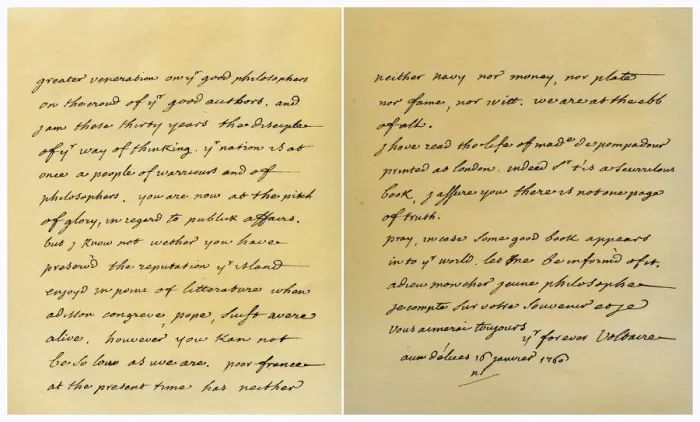 greater veneration on yr good philosophers
on the croud of yr good authors. and
j am these thirty years the disciple
of yr way of thinking. yr nation is at
once a people of warriours and of
philosophers. you are now at the pitch
of glory, in regard to publick affairs.
but j know not wether you have
preserv'd the reputation yr island
enjoy'd in point of litterature when
adisson congreve, pope, swift were
alive. however you kan not
be so low as we are. poor france
at the present time has neither
neither navy nor money, nor plate
nor fame, nor witt. we are at the ebb
of all.
j have read the life of made de pompadour
printed at london. indeed sr t'is a scurrilous
book, j assure you there is not one page
of truth.
pray, in case some good book appears
in to yr world. let me be inform'd of it.
adieu mon cher jeune philosophe
je compte sur votre souvenir et je
vous aimerai toujours
yr forever Voltaire
aux délices 16 janvier 1760